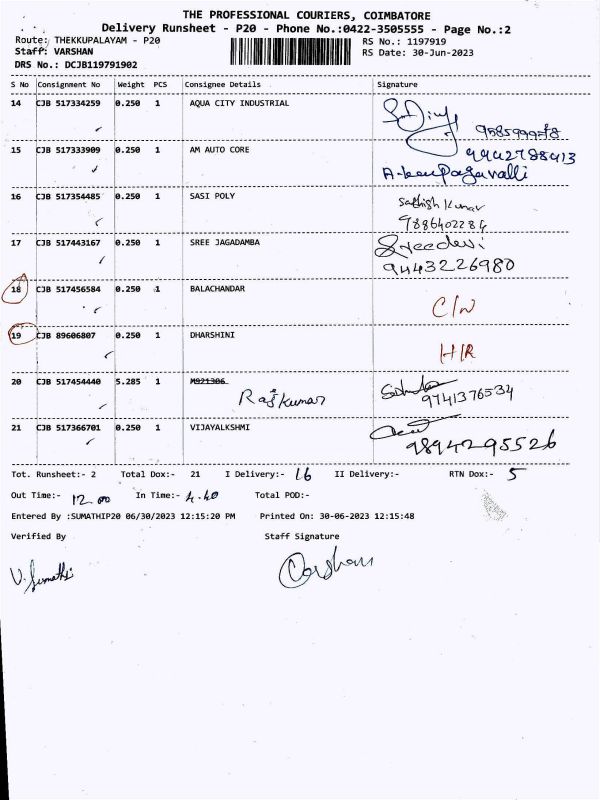 THE PROFESSIONAL COURIERS, COIMBATORE
Delivery Runsheet - P20 - Phone No.:0422-3505555 - Page No.:2
Route: THEKKUPALAYAM - P20 RS No.: 1197919
Staff: VARSHAN RS Date: 30-Jun-2023
DRS No.: DCJB119791902
S No Consignment No Weight PCS Consignee Details Signature
14 CJB 517334259 0.250 1 AQUA CITY INDUSTRIAL
15 CJB 517333909 0.250 1 AM AUTO CORE 9442788413
16 CJB 517354485 0.250 1 SASI POLY Sathish Kumar
9886402284
17 CJB 517443167 0.250 1 SREE JAGADAMBA Sreedevi
9443226980
18 CJB 517456584 0.250 1 BALACHANDAR C/N
19 CJB 89606807 0.250 1 DHARSHINI H/R
20 CJB 517454440 5.285 1 M921306
Rajkumar 9741376534
21 CJB 517366701 0.250 1 VIJAYALKSHMI
9894295526
Tot. Runsheet:- 2 Total Dox:- 21 I Delivery:- 16 II Delivery:- RTN Dox:- 5
Out Time:- 12.00 In Time:- 4.40 Total POD:-
Entered By :SUMATHIP20 06/30/2023 12:15:20 PM Printed On: 30-06-2023 12:15:48
Verified By Staff Signature
V. Sumathi Varshan